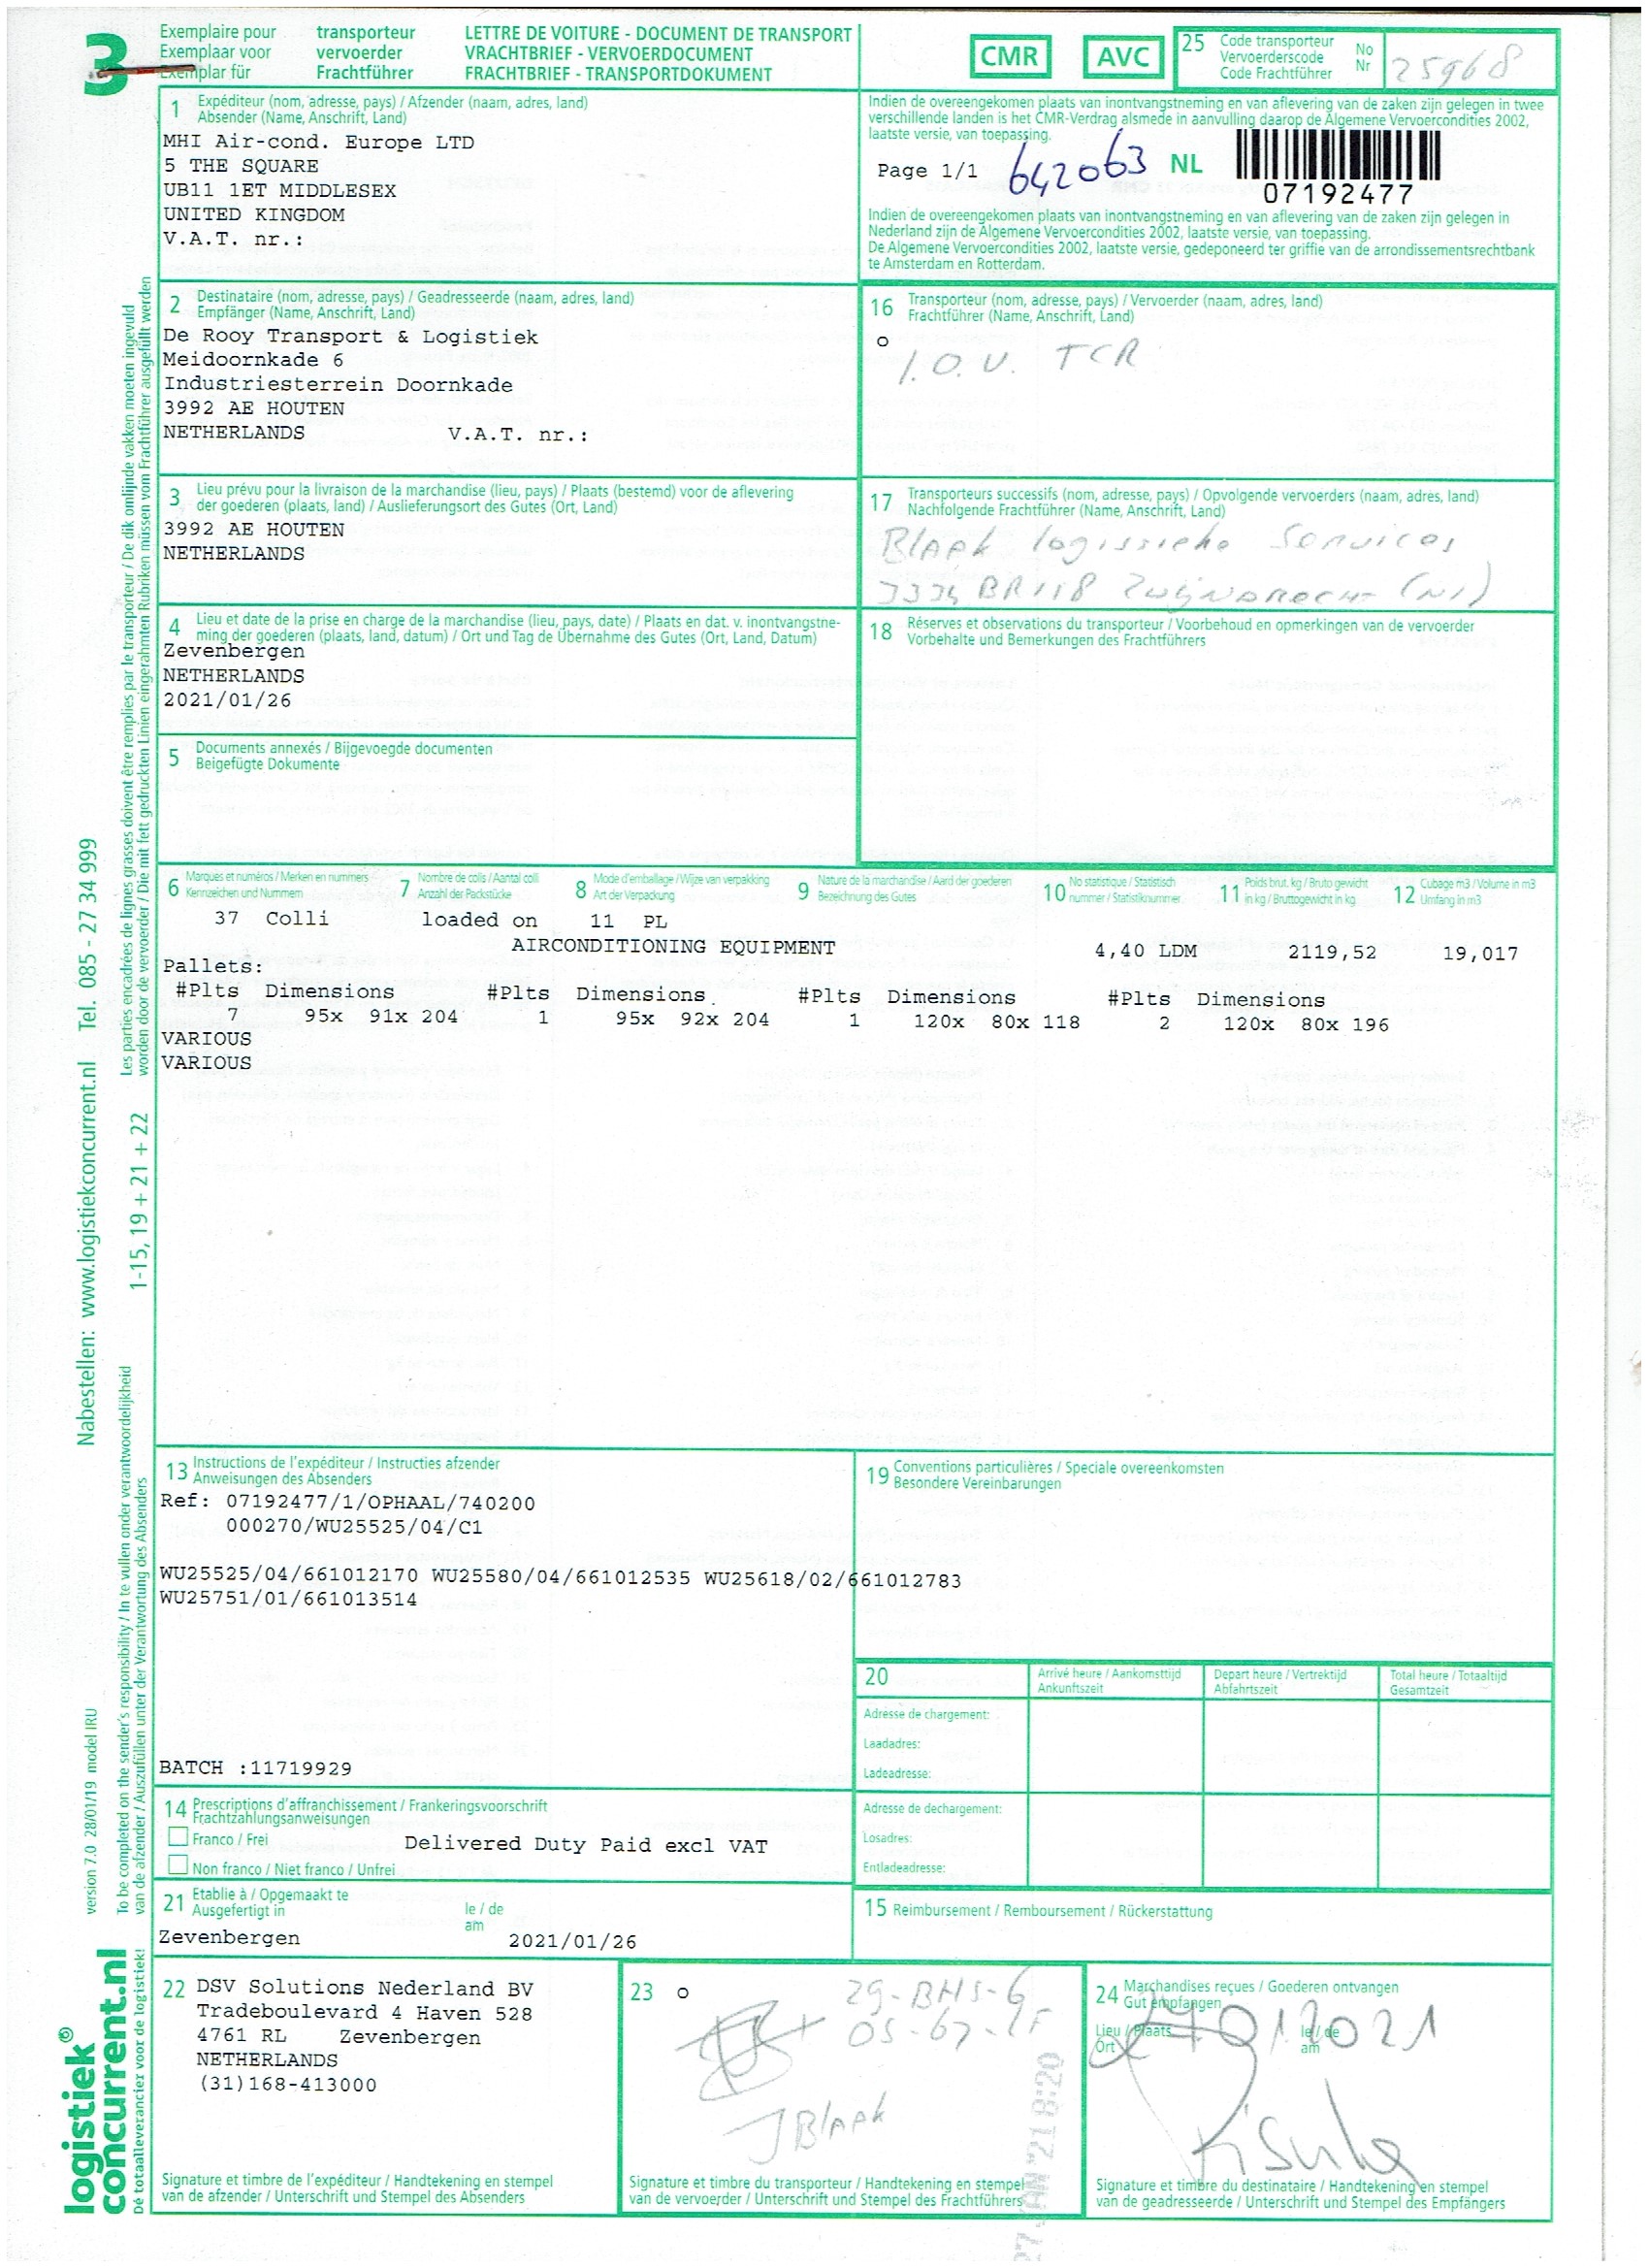 3
Exemplaire pour transporteur LETTRE DE VOITURE - DOCUMENT DE TRANSPORT
Exemplaar voor vervoerder VRACHTBRIEF - VERVOERDOCUMENT
Exemplar für Frachtführer FRACHTBRIEF - TRANSPORTDOKUMENT
CMR AVC
25 Code transporteur No
Vervoerderscode Nr
Code Frachtführer
25968
1 Expéditeur (nom, adresse, pays) / Afzender (naam, adres, land)
Absender (Name, Anschrift, Land)
MHI Air-cond. Europe LTD
5 THE SQUARE
UB11 1ET MIDDLESEX
UNITED KINGDOM
V.A.T. nr.:
Indien de overeengekomen plaats van inontvangstneming en van aflevering van de zaken zijn gelegen in twee
verschillende landen is het CMR-Verdrag alsmede in aanvulling daarop de Algemene Vervoercondities 2002,
laatste versie, van toepassing.
Page 1/1 642063 NL
07192477
Indien de overeengekomen plaats van inontvangstneming en van aflevering van de zaken zijn gelegen in
Nederland zijn de Algemene Vervoercondities 2002, laatste versie, van toepassing.
De Algemene Vervoercondities 2002, laatste versie, gedeponeerd ter griffie van de arrondissementsrechtbank
te Amsterdam en Rotterdam.
2 Destinataire (nom, adresse, pays) / Geadresseerde (naam, adres, land)
Empfänger (Name, Anschrift, Land)
De Rooy Transport & Logistiek
Meidoornkade 6
Industriesterrein Doornkade
3992 AE HOUTEN
NETHERLANDS V.A.T. nr.:
16 Transporteur (nom, adresse, pays) / Vervoerder (naam, adres, land)
Frachtführer (Name, Anschrift, Land)
o
I.O.V. TCR
3 Lieu prévu pour la livraison de la marchandise (lieu, pays) / Plaats (bestemd) voor de aflevering
der goederen (plaats, land) / Auslieferungsort des Gutes (Ort, Land)
3992 AE HOUTEN
NETHERLANDS
17 Transporteurs successifs (nom, adresse, pays) / Opvolgende vervoerders (naam, adres, land)
Nachfolgende Frachtführer (Name, Anschrift, Land)
Blaak
(Nl)
4 Lieu et date de la prise en charge de la marchandise (lieu, pays, date) / Plaats en dat. v. inontvangstne-
ming der goederen (plaats, land, datum) / Ort und Tag de Übernahme des Gutes (Ort, Land, Datum)
Zevenbergen
NETHERLANDS
2021/01/26
18 Réserves et observations du transporteur / Voorbehoud en opmerkingen van de vervoerder
Vorbehalte und Bemerkungen des Frachtführers
5 Documents annexés / Bijgevoegde documenten
Beigefügte Dokumente
6 Marques et numéros / Merken en nummers
Kennzeichen und Nummern
7 Nombre de colis / Aantal colli
Anzahl der Packstücke
8 Mode d'emballage / Wijze van verpakking
Art der Verpackung
9 Nature de la marchandise / Aard der goederen
Bezeichnung des Gutes
10 No statistique / Statistisch
nummer / Statistiknummer
11 Poids brut. kg / Bruto gewicht
in kg / Bruttogewicht in kg
12 Cubage m3 / Volume in m3
Umfang in m3
37 Colli loaded on 11 PL
AIRCONDITIONING EQUIPMENT 4,40 LDM 2119,52 19,017
Pallets:
#Plts Dimensions #Plts Dimensions #Plts Dimensions #Plts Dimensions
7 95x 91x 204 1 95x 92x 204 1 120x 80x 118 2 120x 80x 196
VARIOUS
VARIOUS
13 Instructions de l'expéditeur / Instructies afzender
Anweisungen des Absenders
Ref: 07192477/1/OPHAAL/740200
000270/WU25525/04/C1
WU25525/04/661012170 WU25580/04/661012535 WU25618/02/661012783
WU25751/01/661013514
BATCH :11719929
19 Conventions particulières / Speciale overeenkomsten
Besondere Vereinbarungen
20
Arrivé heure / Aankomsttijd
Ankunftszeit
Depart heure / Vertrektijd
Abfahrtszeit
Total heure / Totaaltijd
Gesamtzeit
Adresse de chargement:
Laadadres:
Ladeadresse:
Adresse de dechargement:
Losadres:
Entladeadresse:
14 Prescriptions d'affranchissement / Frankeringsvoorschrift
Frachtzahlungsanweisungen
Franco / Frei
Delivered Duty Paid excl VAT
Non franco / Niet franco / Unfrei
21 Etablie à / Opgemaakt te le / de
Ausgefertigt in am
Zevenbergen 2021/01/26
15 Reimbursement / Remboursement / Rückerstattung
22 DSV Solutions Nederland BV
Tradeboulevard 4 Haven 528
4761 RL Zevenbergen
NETHERLANDS
(31)168-413000
Signature et timbre de l'expéditeur / Handtekening en stempel
van de afzender / Unterschrift und Stempel des Absenders
23 o
29-BHS-6
J Blaak
27 JAN '21 8:20
Signature et timbre du transporteur / Handtekening en stempel
van de vervoerder / Unterschrift und Stempel des Frachtführers
24 Marchandises reçues / Goederen ontvangen
Gut empfangen
Lieu / Plaats le / de
Ort am
27012021
Signature et timbre du destinataire / Handtekening en stempel
van de geadresseerde / Unterschrift und Stempel des Empfängers
Les parties encadrées de lignes grasses doivent être remplies par le transporteur / De dik omlijnde vakken moeten ingevuld
worden door de vervoerder / Die mit fett gedruckten Linien eingerahmten Rubriken müssen vom Frachtführer ausgefüllt werden
Nabestellen: www.logistiekconcurrent.nl Tel. 085 - 27 34 999
1-15, 19 + 21 + 22
To be completed on the sender's responsibility / In te vullen onder verantwoordelijkheid
van de afzender / Auszufüllen unter der Verantwortung des Absenders
version 7.0 28/01/19 model IRU
logistiek®
concurrent.nl
Dé totaalleverancier voor de logistiek!